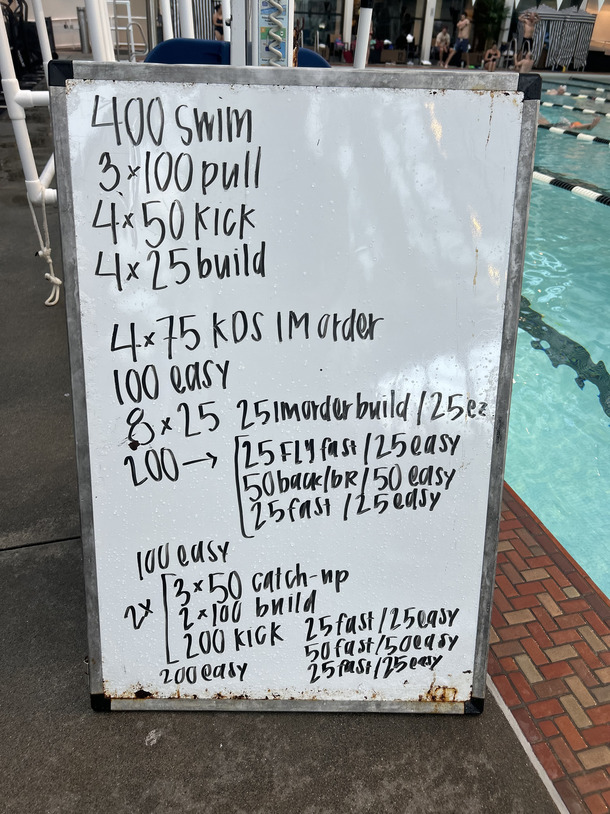 400 swim
3x100 pull
4x50 kick
4x25 build
4x75 KDS IM order
100 easy
8x25 25 IM order build / 25 ez
200 → [25 FLY fast / 25 easy
50 back/br / 50 easy
25 fast / 25 easy
100 easy
2x [3x50 catch-up
2x100 build
200 kick 25 fast / 25 easy
50 fast / 50 easy
200 easy 25 fast / 25 easy